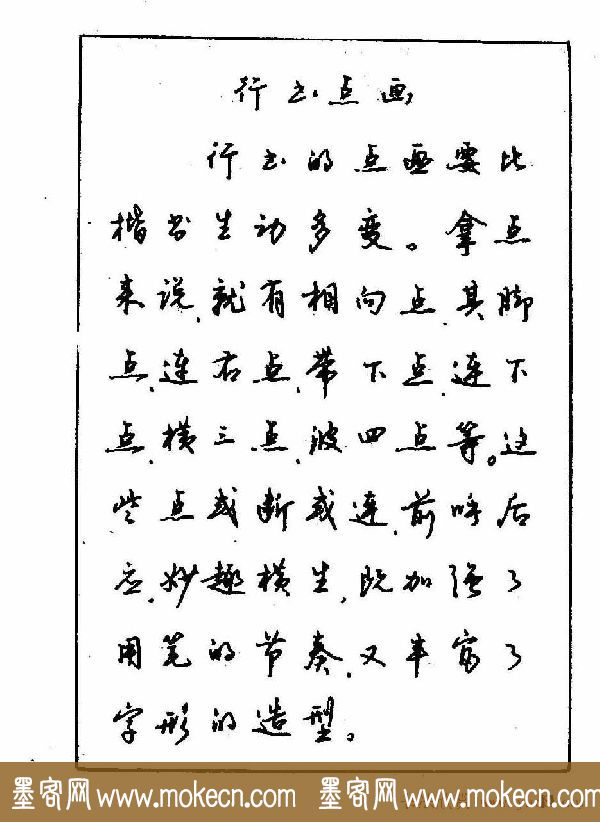 行书点画
行书的点画要比
楷书生动多变。拿点
来说，就有相向点、其脚
点、连右点、带下点、连下
点、横三点、波四点等。这
些点或断或连，前呼后
应，妙趣横生，既加强了
用笔的节奏，又丰富了
字形的造型。
墨客网 www.mokecn.com 墨客网 www.mokecn.com